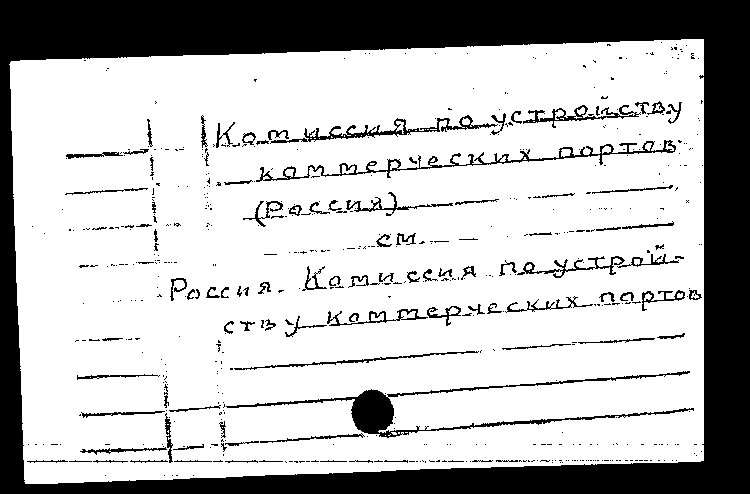 Комиссия по устройству
коммерческих портов
(Россия)
см.
Россия. Комиссия по устрой-
ству коммерческих портов